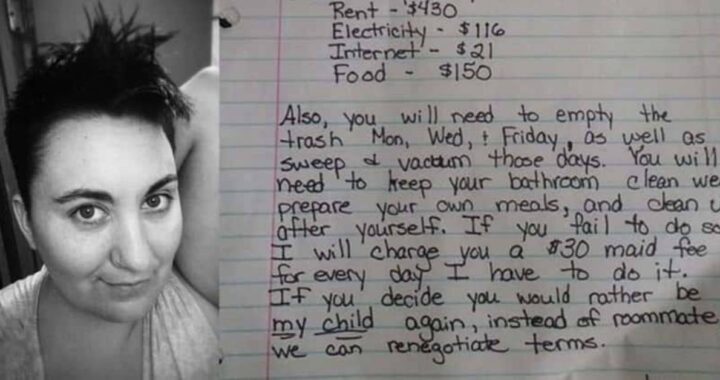 Rent - $430
Electricity - $116
Internet - $21
Food - $150
Also, you will need to empty the
trash Mon, Wed, + Friday, as well as
sweep & vacuum those days. You will
need to keep your bathroom clean we
prepare your own meals, and clean u
after yourself. If you fail to do so
I will charge you a $30 maid fee
for every day I have to do it.
If you decide you would rather be
my child again, instead of roommate
we can renegotiate terms.